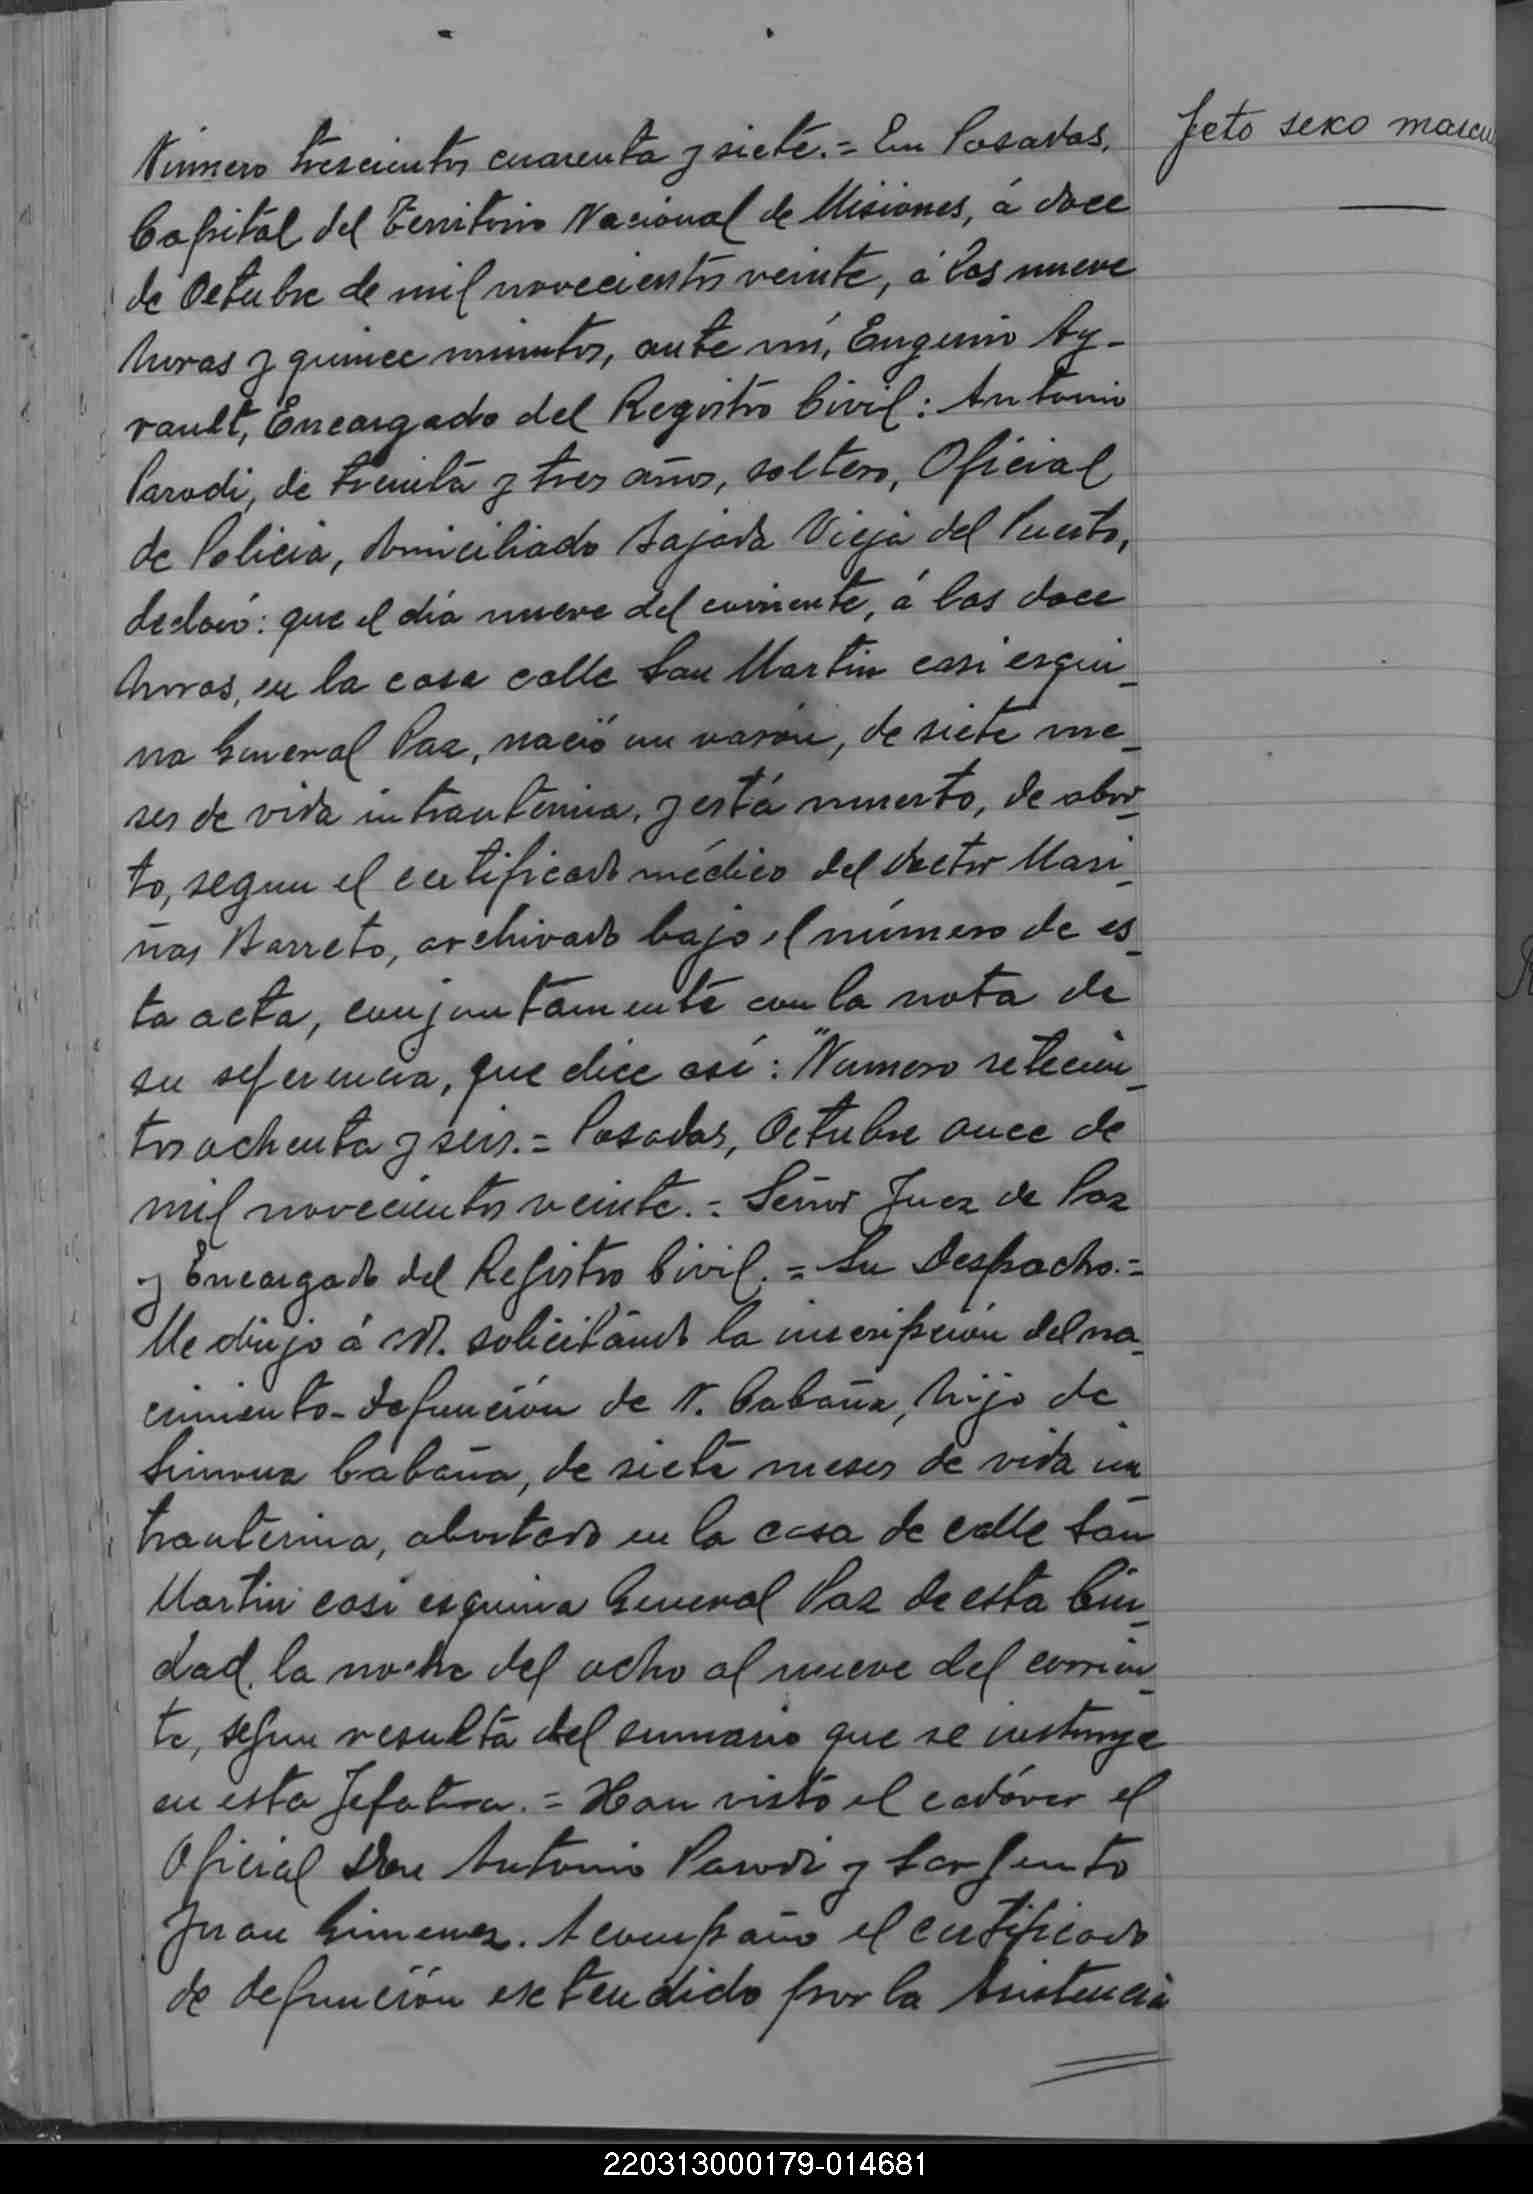 Número trescientos cuarenta y siete.= En Posadas,
Capital del Territorio Nacional de Misiones, á doce
de Octubre de mil novecientos veinte, á las nueve
horas y quince minutos, ante mí, Eugenio Ay-
rault, Encargado del Registro Civil: Antonio
Parodi, de treinta y tres años, soltero, Oficial
de Policia, domiciliado Bajada Vieja del Puerto,
declaró: que el día nueve del corriente, á las doce
horas, en la casa calle San Martin casi esqui-
na General Paz, nació un varón, de siete me-
ses de vida intrauterina, y está muerto, de abor-
to, segun el certificado médico del doctor Mari-
ñas Barreto, archivado bajo el número de es-
ta acta, conjuntamente con la nota de
su referencia, que dice así: "Numero setecien-
tos ochenta y seis.= Posadas, Octubre once de
mil novecientos veinte.= Señor Juez de Paz
y Encargado del Registro Civil.= Su Despacho.=
Me dirijo á Vd. solicitando la inscripción del na-
cimiento-defunción de N. Cabaña, hijo de
Simona Cabaña, de siete meses de vida in-
trauterina, abortado en la casa de calle San
Martin casi esquina General Paz de esta Ciu-
dad, la noche del ocho al nueve del corrien-
te, segun resulta del sumario que se instruye
en esta Jefatura.= Han visto el cadáver el
Oficial Don Antonio Parodi y Sargento
Juan Gimenez. Acompaño el certificado
de defunción extendido por la Asistencia
Feto sexo mascu
220313000179-014681